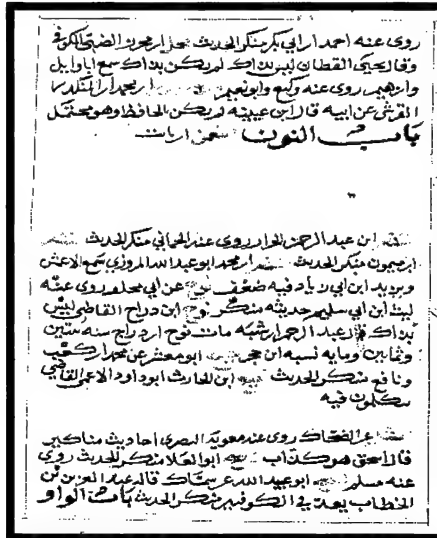 روى عنه احمد ابن ابي بكر منكر الحديث محرز الضبي الكوفي
وقال يحيى القطان ليس بذاك لم يكن بذاك سمع ابا وايل
وابرهيم روى عنه وكيع وابو نعيم بن محمد بن المنكدر
القرشي عن ابيه قال ابن عيينة لم يكن بالحافظ وهو محتمل
باب النون
ابن عبد الرحمن روى عنه الحماني منكر الحديث
ابن ميمون منكر الحديث محمد ابو عبد الله المروزي سمع الاعمش
ويزيد ابن ابي زياد فيه ضعف عن ابي مجلز روى عنه
ليث ابن ابي سليم حديثه منكر نوح ابن دراج القاضي ليس
بذاك قال عبد الرحمن ابن شيبه مات نوح ابن دراج سنه ثنتين
وثمانين ومايه ابو معشر عن محمد ابن كعب
ونافع منكر الحديث ابن الحارث ابو داود الاعمى القاضي
يتكلمون فيه
الضحاك روى عنه معوية البصري احاديث مناكير
قال اسحق هو كذاب ابو العلا منكر الحديث روى
عنه مسلم ابو عبيد الله عن سماك قاله عبد العزيز بن
الخطاب يعد في الكوفيين منكر الحديث باب الواو